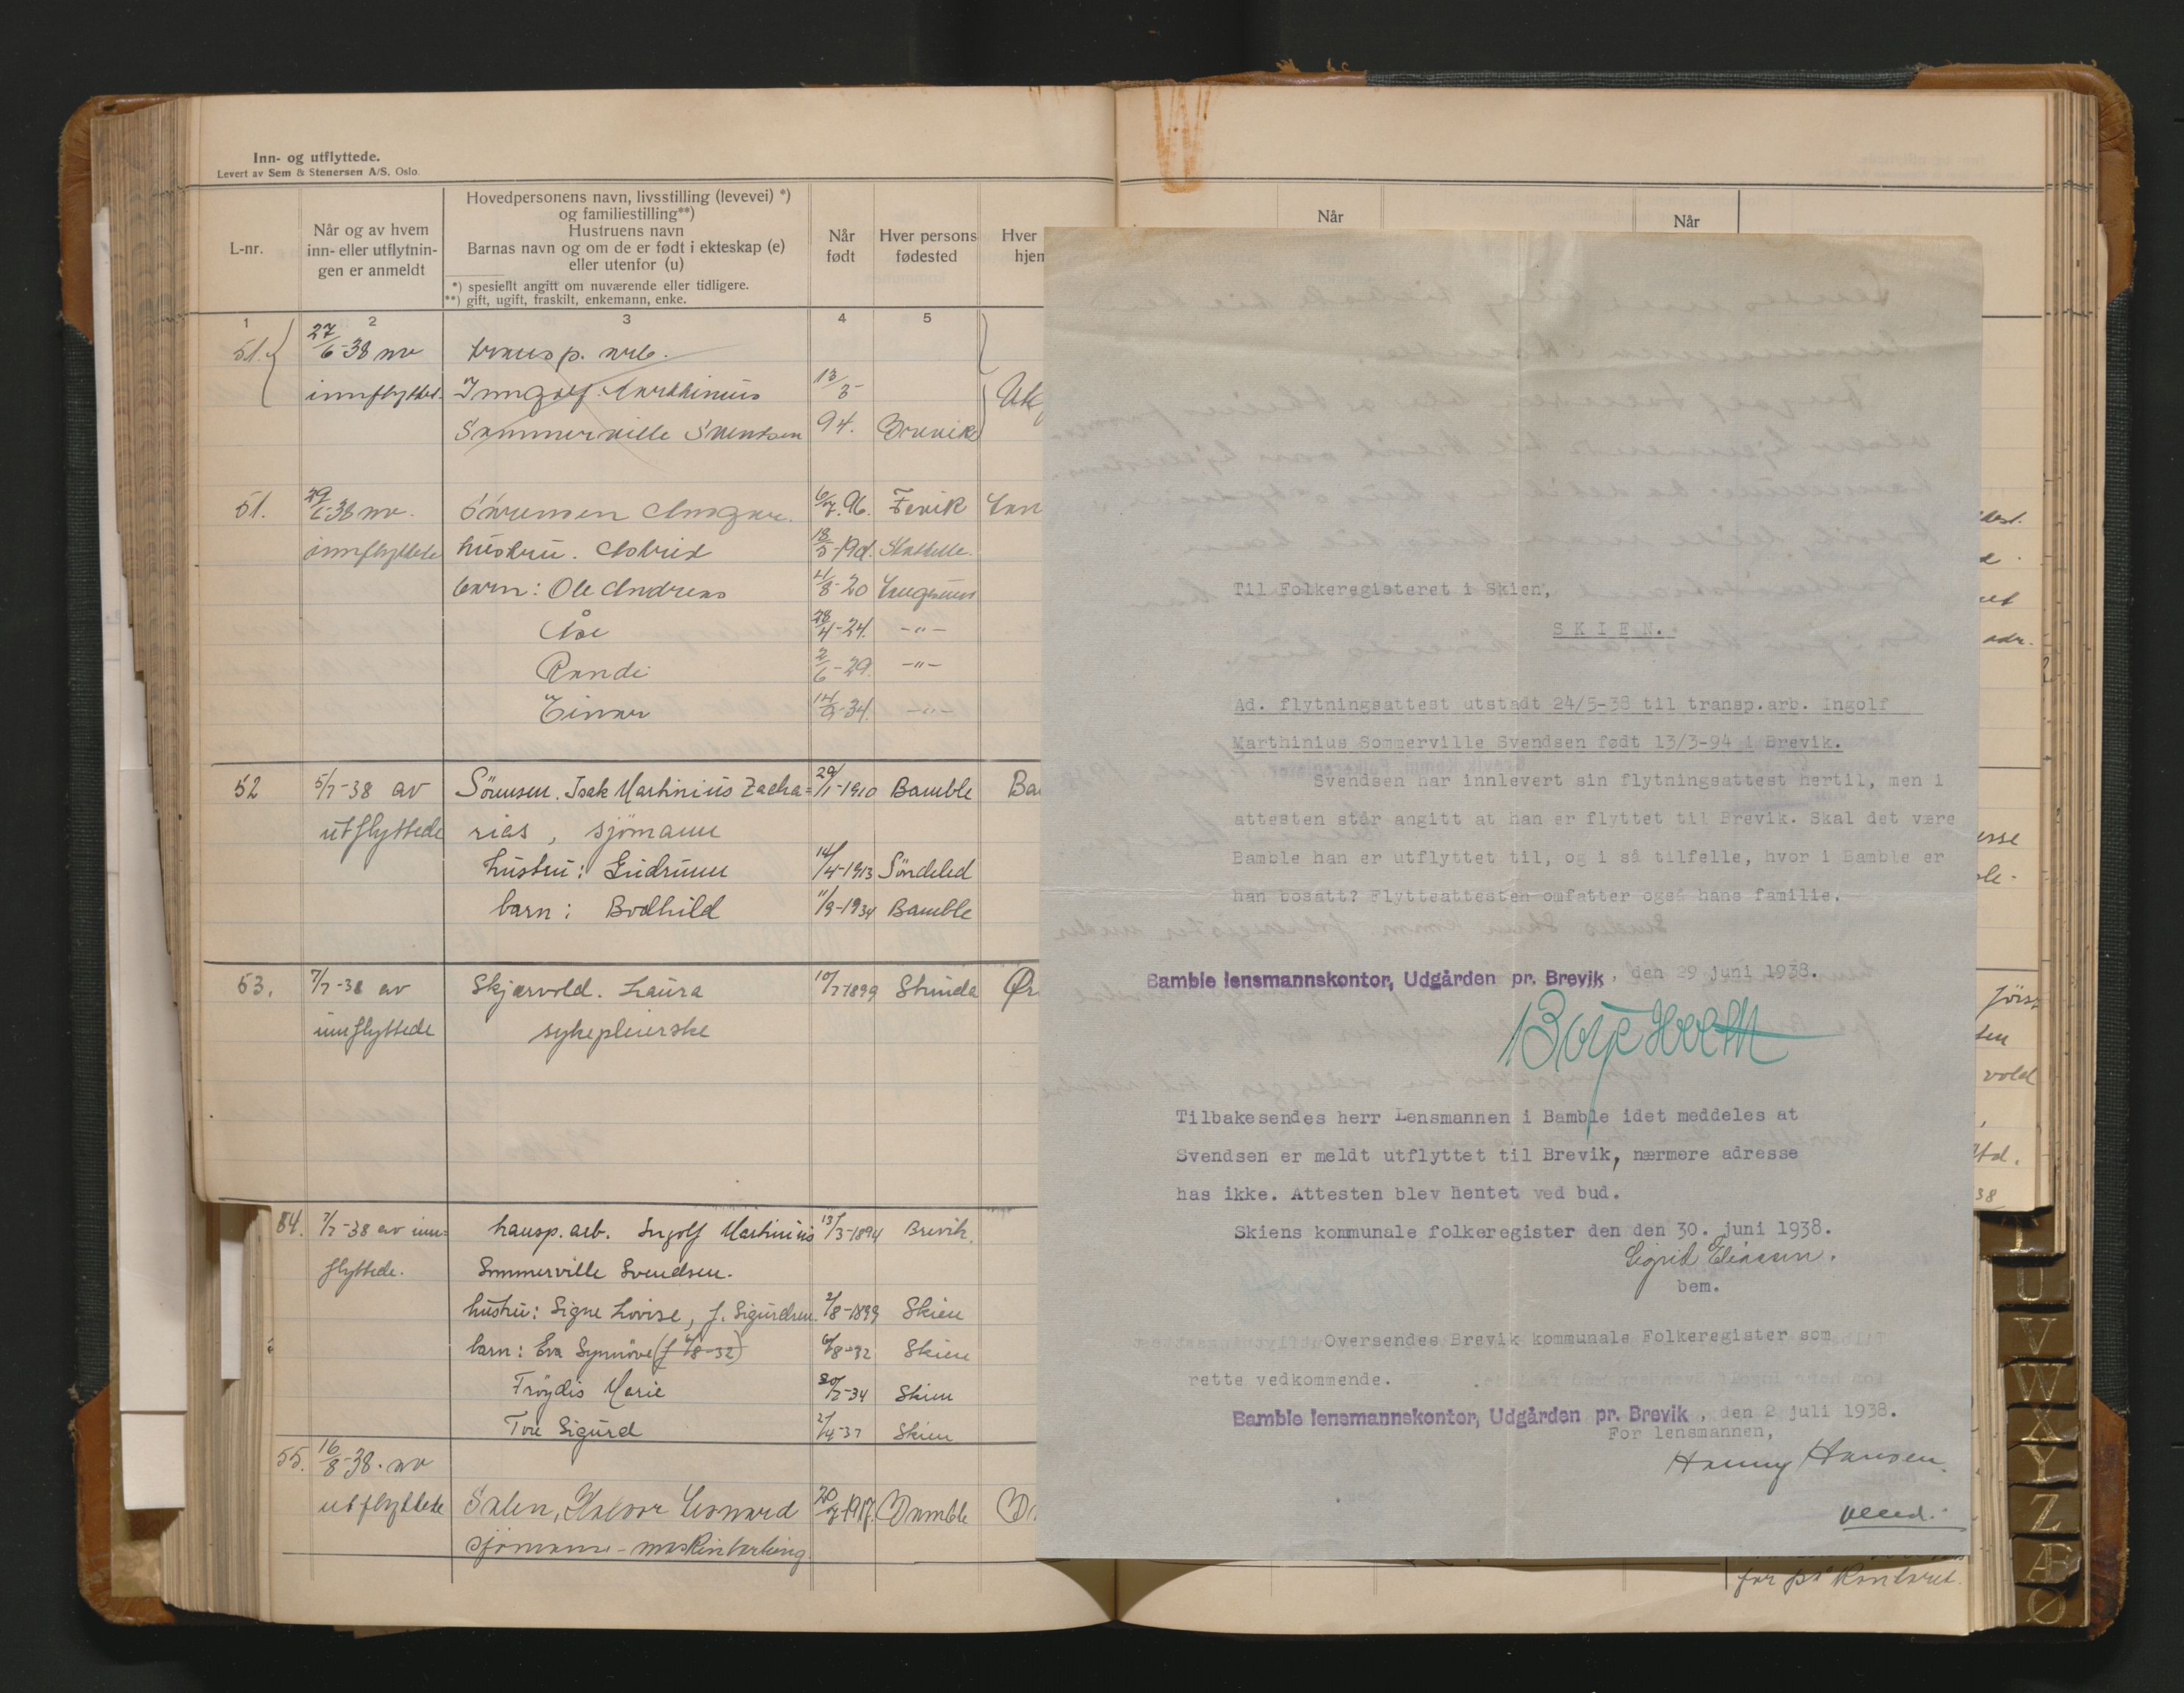 Inn- og utflyttede.
Levert av Sem & Stenersen A/S. Oslo.
L-nr.
Når og av hvem
inn- eller utflytnin-
gen er anmeldt
Hovedpersonens navn, livsstilling (levevei) *)
og familiestilling**)
Hustruens navn
Barnas navn og om de er født i ekteskap (e)
eller utenfor (u)
*) spesiellt angitt om nuværende eller tidligere.
**) gift, ugift, fraskilt, enkemann, enke.
Når
født
Hver persons
fødested
Hver
hjem
1 2 3 4 5
51. 27/6-38 av transp. arb.
innflyttet. Inngolf Marthinius 13/3
Sommerville Svendsen 94. Brevik
51. 29/6-38 av. Sørensen Ansgar. 6/7.96. Fevik
innflyttete hustru. Astrid 18/5-1901. Stathelle.
barn: Ole Andreas 21/8-20 Langesund
Åse 28/4-24. -"-
Randi 2/6-29. -"-
Einar 14/9-34. -"-
52 5/7-38 av Sörensen. Isak Martinius Zacha= 29/1-1910 Bamble Ba
utflyttede rias, sjömann
hustru: Gudrunn 14/4-1913 Söndeled
barn: Bodhild 11/9-1934 Bamble
53. 7/7-38 av Skjærvold. Laura 10/7 1899 Strinda Ør
innflyttede sykepleierske
54. 7/7-38 av inn= transp. arb. Ingolf Martinius 13/3-1894 Brevik.
flyttede. Sommerville Svendsen.
hustru: Signe Lovise, f. Sigurdsen. 2/8-1899 Skien
barn: Eva Synnöve (f 6/8-32) 6/8-32 Skien
Fröydis Marie 20/7-34 Skien
Tore Sigurd 2/4-37 Skien
55. 16/8-38. av
utflyttete Salen, Halvor Leonard 20/7-1917. Bamble
sjömann - maskinlærling
Når
Når
Til Folkeregisteret i Skien,
SKIEN.
Ad. flytningsattest utstadt 24/5-38 til transp.arb. Ingolf
Marthinius Sommerville Svendsen født 13/3-94 i Brevik.
Svendsen har innlevert sin flytningsattest hertil, men i
attesten står angitt at han er flyttet til Brevik. Skal det være
Bamble han er utflyttet til, og i så tilfelle, hvor i Bamble er
han bosatt? Flytteattesten omfatter også hans familie.
Bamble lensmannskontor, Udgården pr. Brevik, den 29 juni 1938.
Tilbakesendes herr Lensmannen i Bamble idet meddeles at
Svendsen er meldt utflyttet til Brevik, nærmere adresse
has ikke. Attesten blev hentet ved bud.
Skiens kommunale folkeregister den den 30. juni 1938.
Sigrid Eliassen.
bem.
Oversendes Brevik kommunale Folkeregister som
rette vedkommende.
Bamble lensmannskontor, Udgården pr. Brevik, den 2 juli 1938.
For lensmannen,
Hanny Hansen.
for på kontoret.
U
V
W
X
Y
Z
Æ
Ø